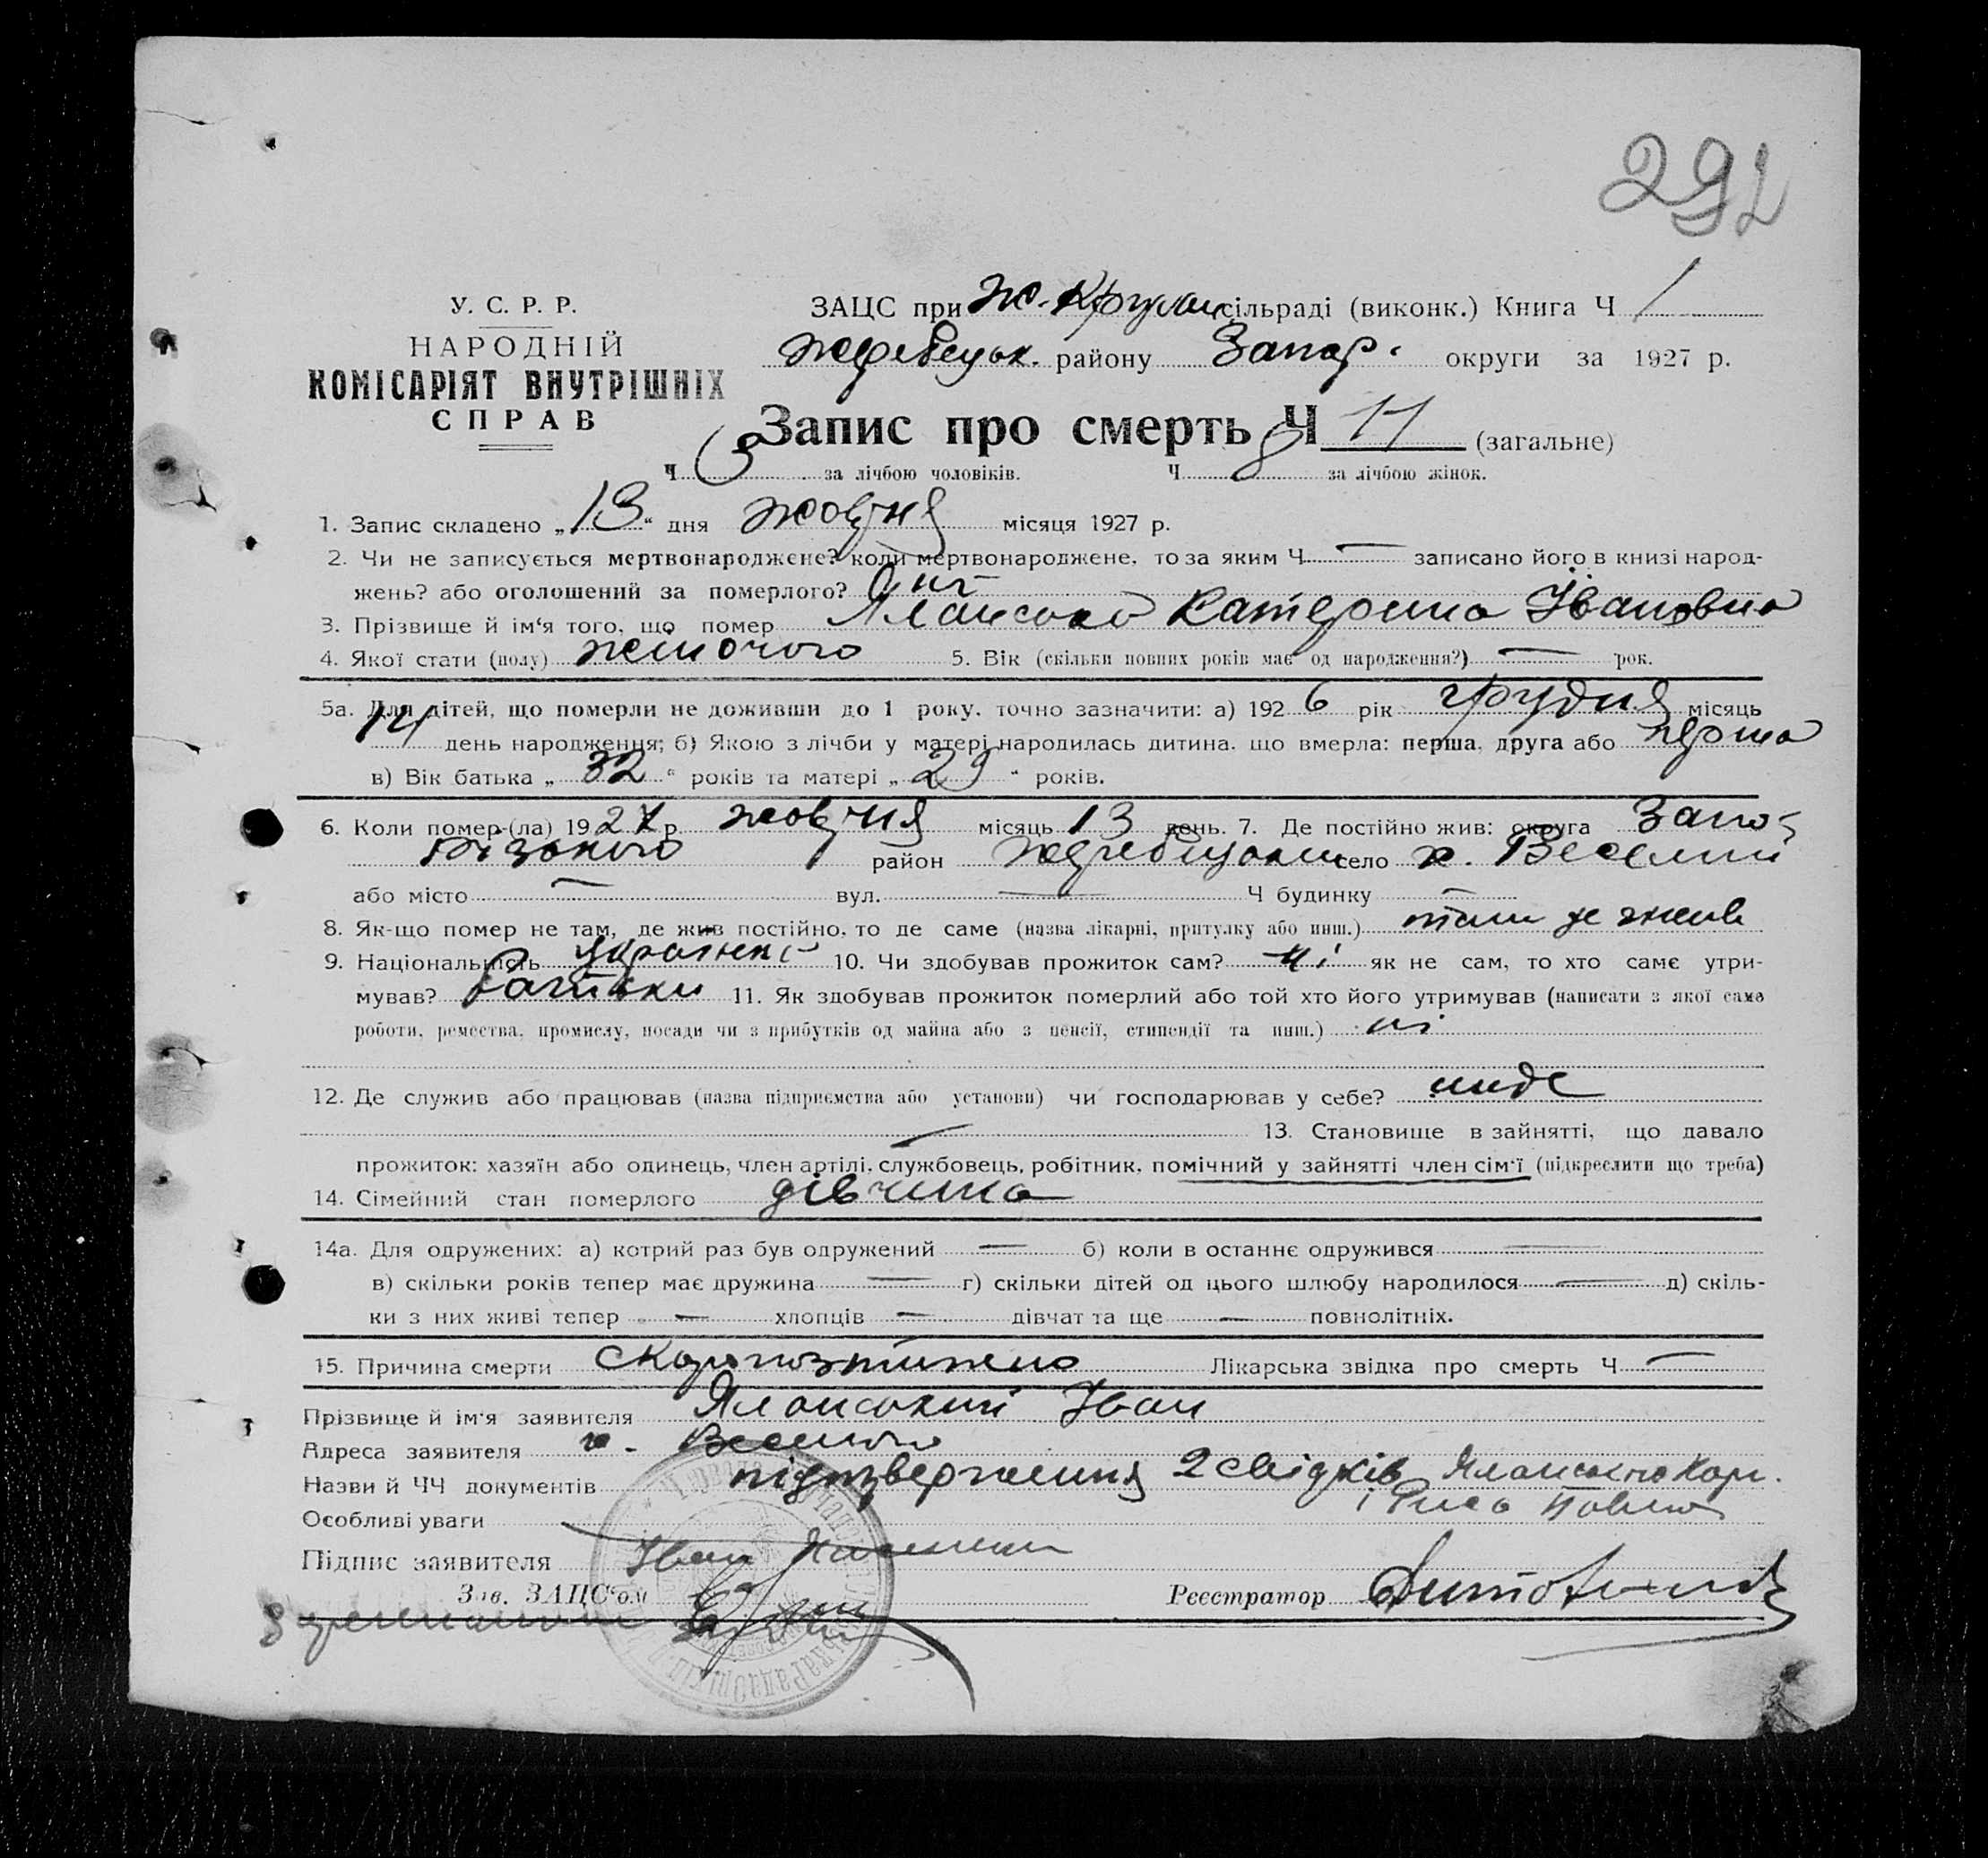 292
У. С. Р. Р.
НАРОДНІЙ
КОМІСАРІЯТ ВНУТРІШНІХ
СПРАВ
ЗАЦС при сільраді (виконк.) Книга Ч 1
Жеребецьк. району Запор. округи за 1927 р.
Запис про смерть Ч 11 (загальне)
Ч 3 за лічбою чоловіків. Ч 8 за лічбою жінок.
1. Запис складено „13“ дня жовтня місяця 1927 р.
2. Чи не записується мертвонароджене? коли мертвонароджене, то за яким Ч — записано його в книзі народ-
жень? або оголошений за померлого? ні
3. Прізвище й ім'я того, що помер Ялансько Катерина Івановна
4. Якої стати (полу) жіночого 5. Вік (скільки повних років має од народження?) — рок.
5а. Для дітей, що померли не доживши до 1 року, точно зазначити: а) 1926 рік грудня місяць
14 день народження; б) Якою з лічби у матері народилась дитина, що вмерла: перша, друга або перша
в) Вік батька „32“ років та матері „29“ років.
6. Коли помер-(ла) 1927 р. жовтня місяць 13 день. 7. Де постійно жив: округа Запо-
різького район село х. Веселий
або місто — вул. — Ч будинку —
8. Як-що помер не там, де жив постійно, то де саме (назва лікарні, притулку або инш.) там де жив
9. Національність 10. Чи здобував прожиток сам? ні як не сам, то хто саме утри-
мував? батьки 11. Як здобував прожиток померлий або той хто його утримував (написати з якої саме
роботи, ремества, промислу, посади чи з прибутків од майна або з пенсії, стипендії та инш.) ні
12. Де служив або працював (назва підприємства або установи) чи господарював у себе? ниде
— 13. Становище в зайнятті, що давало
прожиток: хазяїн або одинець, член артілі, службовець, робітник, помічний у зайнятті член сім'ї (підкреслити що треба)
14. Сімейний стан померлого дівчина
14а. Для одружених: а) котрий раз був одружений — б) коли в останнє одружився —
в) скільки років тепер має дружина — г) скільки дітей од цього шлюбу народилося — д) скіль-
ки з них живі тепер — хлопців — дівчат та ще — повнолітніх.
15. Причина смерти скоропостижно Лікарська звідка про смерть Ч —
Прізвище й ім'я заявителя Яланський Іван
Адреса заявителя х.
Назви й ЧЧ документів 2 свідків
Особливі уваги
Підпис заявителя Іван
Зав. ЗАЦС'ом
Реєстратор